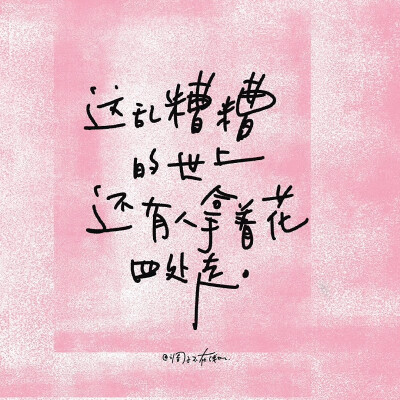 这乱糟糟
的世上
还有人拿着花
四处走。